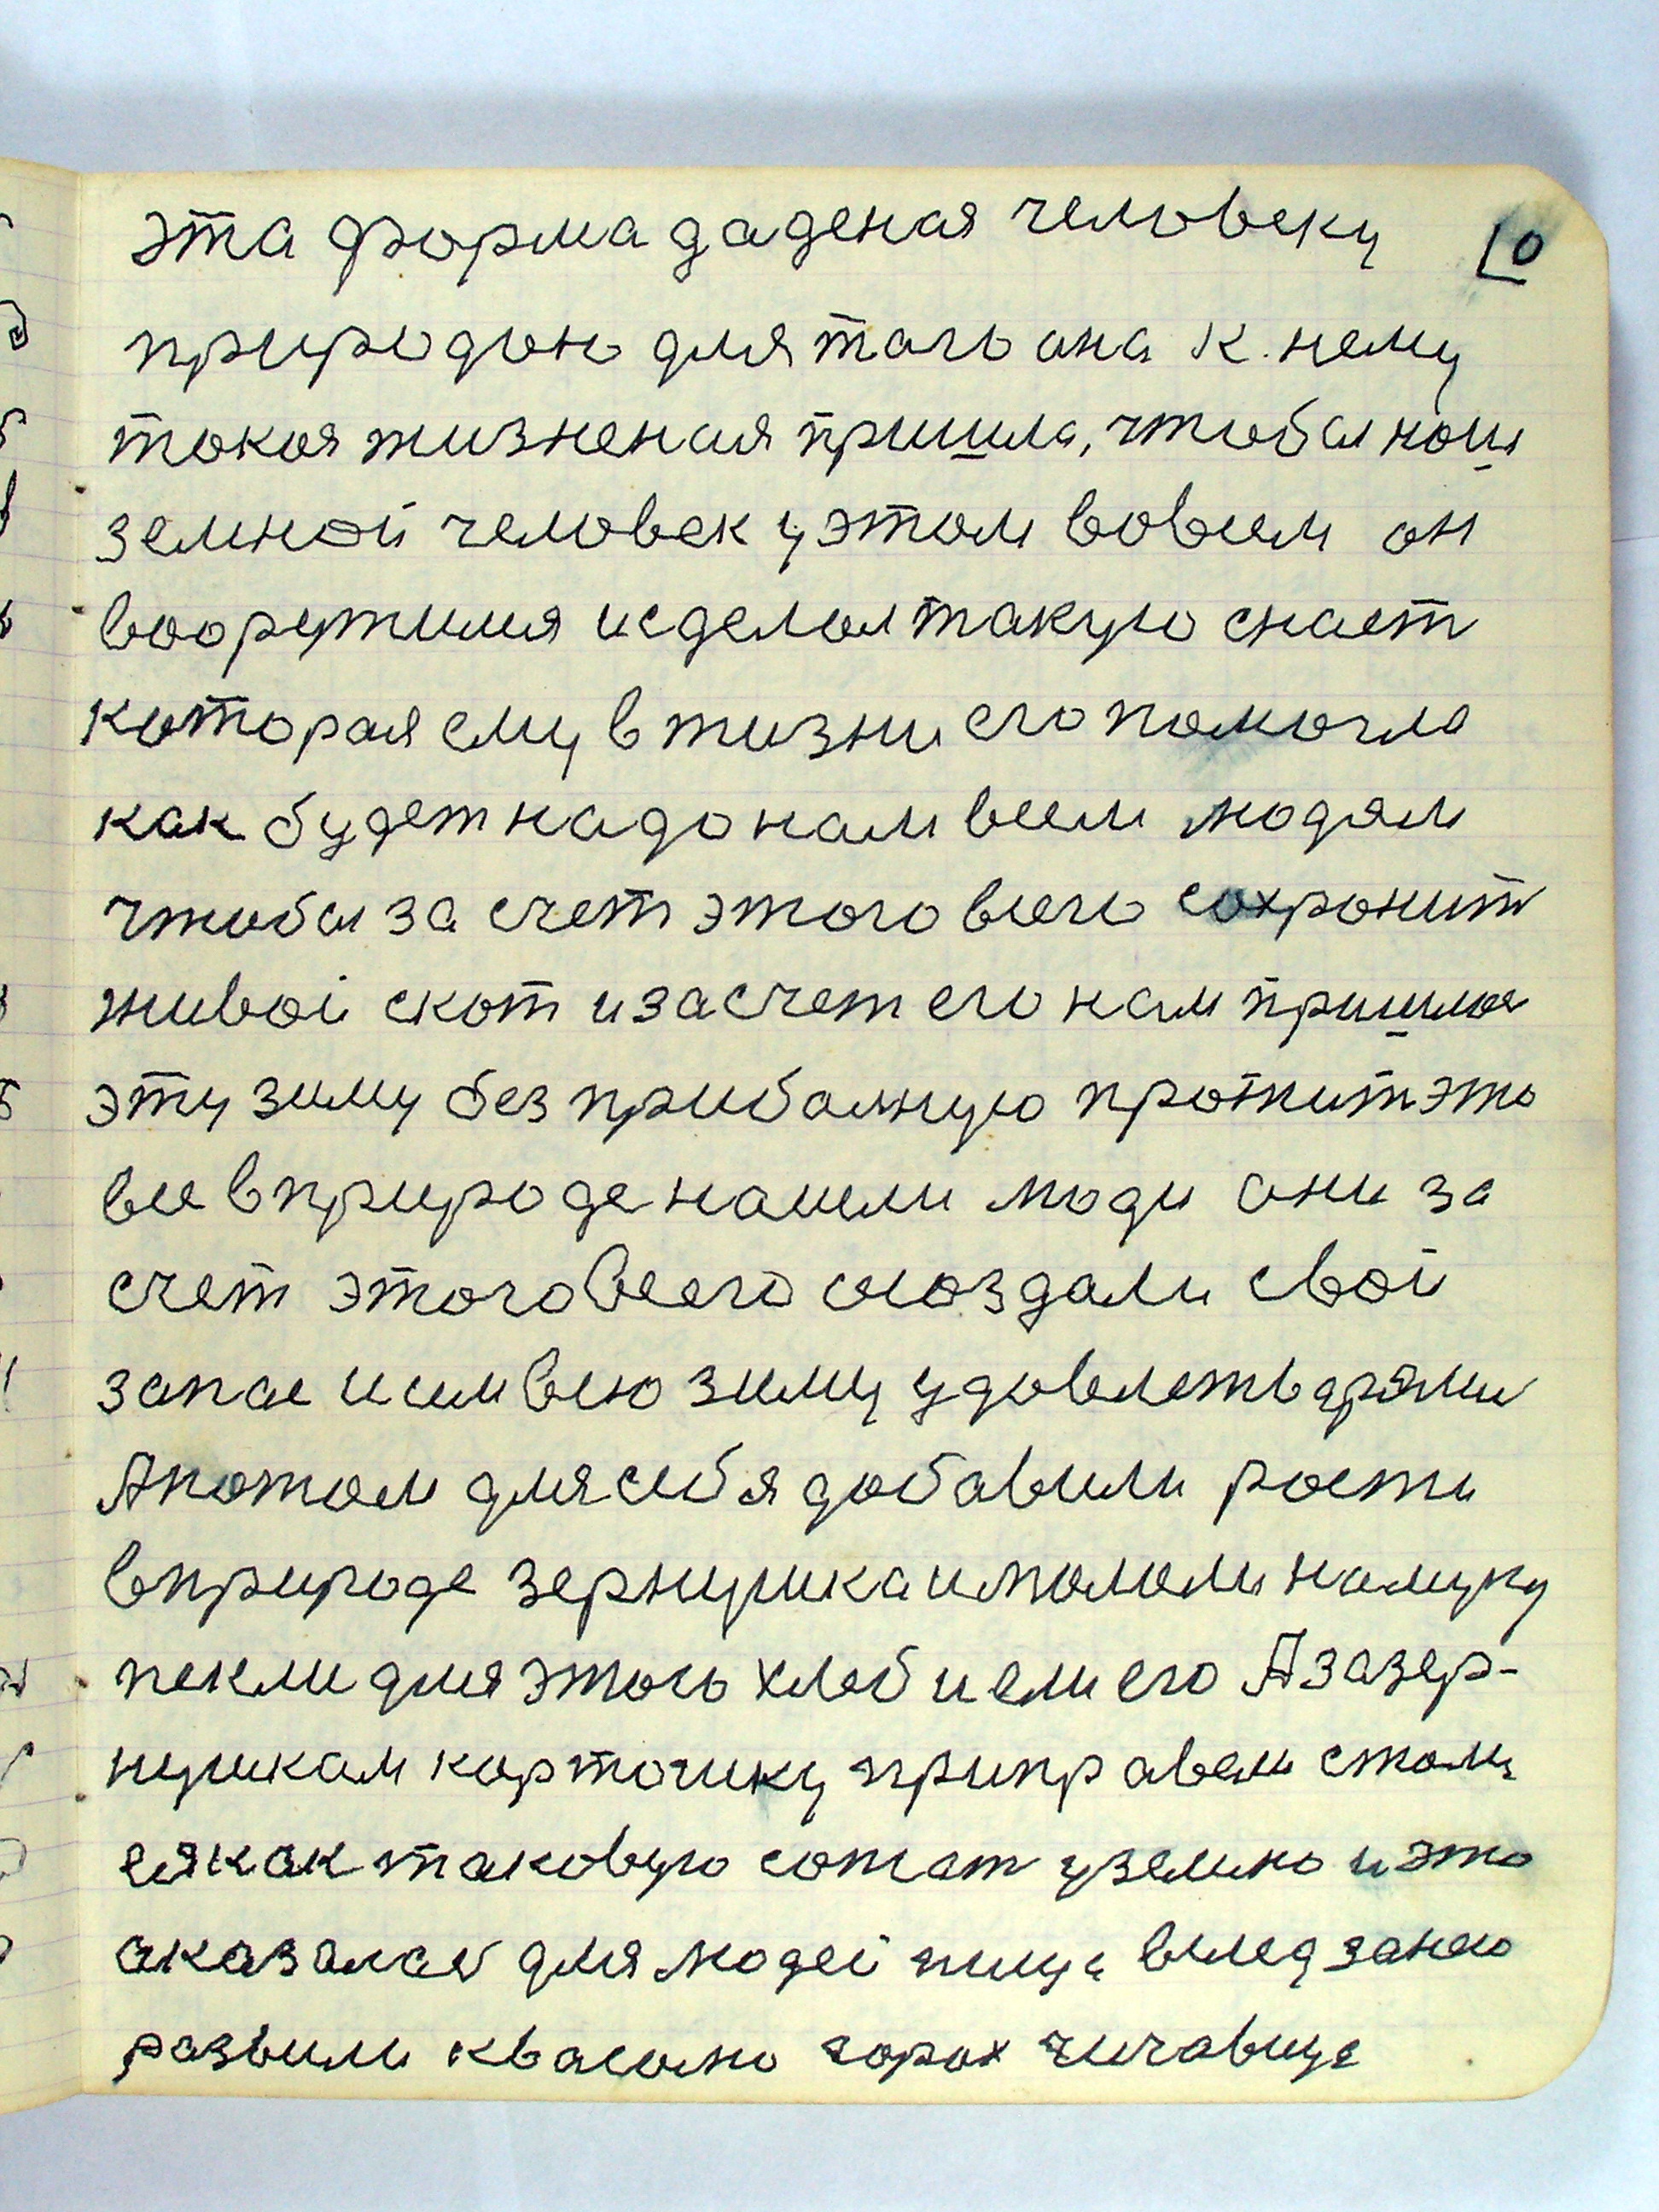 эта форма даденая человеку 10
природою для таго она к нему
токоя жизненая пришла, чтобы наш
земной человек у этом вовсем он
вооружился исделал такую снаст
которая ему в жизни его помогла
как будет надо нам всем людям
чтобы за счет этого всего сохронит
живой скот иза счет его нам пришлос
эту зиму без прибальную прожит это
все вприроде нашли люди они за
счет этоговсего сыоздали свой
запас иим всю зиму удовлетьваряли
А потом длясебя добавили рости
вприроде зернушка имололи намуку
пекли для этого хлеб и ели его А зазер-
нушкам картошку приправели стали
ея как таковую сажат уземлю и это
аказалас для людей пища вслед занею
развили квасолю горох чичавица